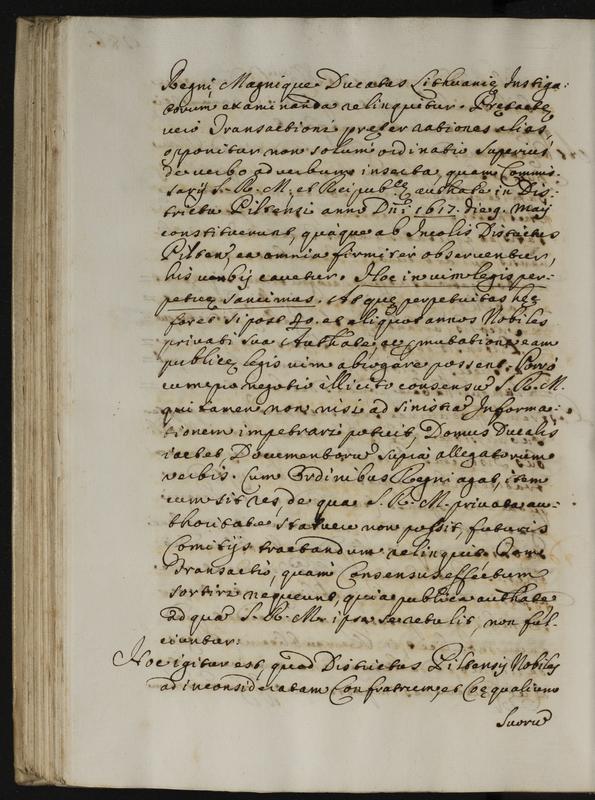 Regni Magnique Ducatus Lithuanię Instiga:
torum examinanda relinquetur. Pręfatę
vero Transactioni pręter rationes alias,
opponitur non solum ordinatio superius
de verbo ad verbum inserta, quam Commis:
sarij S. R. M. et Reipub:cę authate in Dis:
trictu Piltensi anno Dni 1617. die 9. Maij
constituerunt, quæque ab Incolis Districtus
Pilten: ea omnia firmiter observentur,
his verbis cavetur. Hoc in vim legis per:
petuę sancimus. At quę perpetuitas hęc
foret si post 40. et aliquot annos Nobiles
privati sua Authate, ac mutatione eam
publicę legis vim abrogare possent. Porro
cum pro negotio illicito consensu S. R. M.
qui tamen non nisi ad sinistra Informa:
tionem impetrari potuit, Domus Ducalis
iactet, Documentorū supra allegatorum
verbis. Cum Ordinibus Regni agat, item
cum sit res, de qua S. R. M. privata au:
thoritate statuere non possit, futuris
Comitijs tractandum relinquit.
Transactio, quam Consensus effectum
sortiri nequeunt, quia publica authate
ad qua S. R. M. ipsa se retulit, non ful:
ciuntur:
Hoc igitur est, quod Districtus Piltensis Nobiles
ad inconsideratam Confratrum, et Coęqualium
Suorū